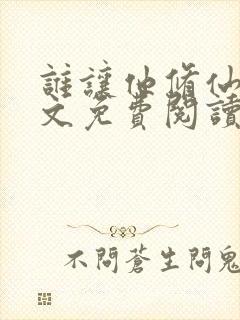 誰讓他修仙
文免費閱讀
不問蒼生問鬼